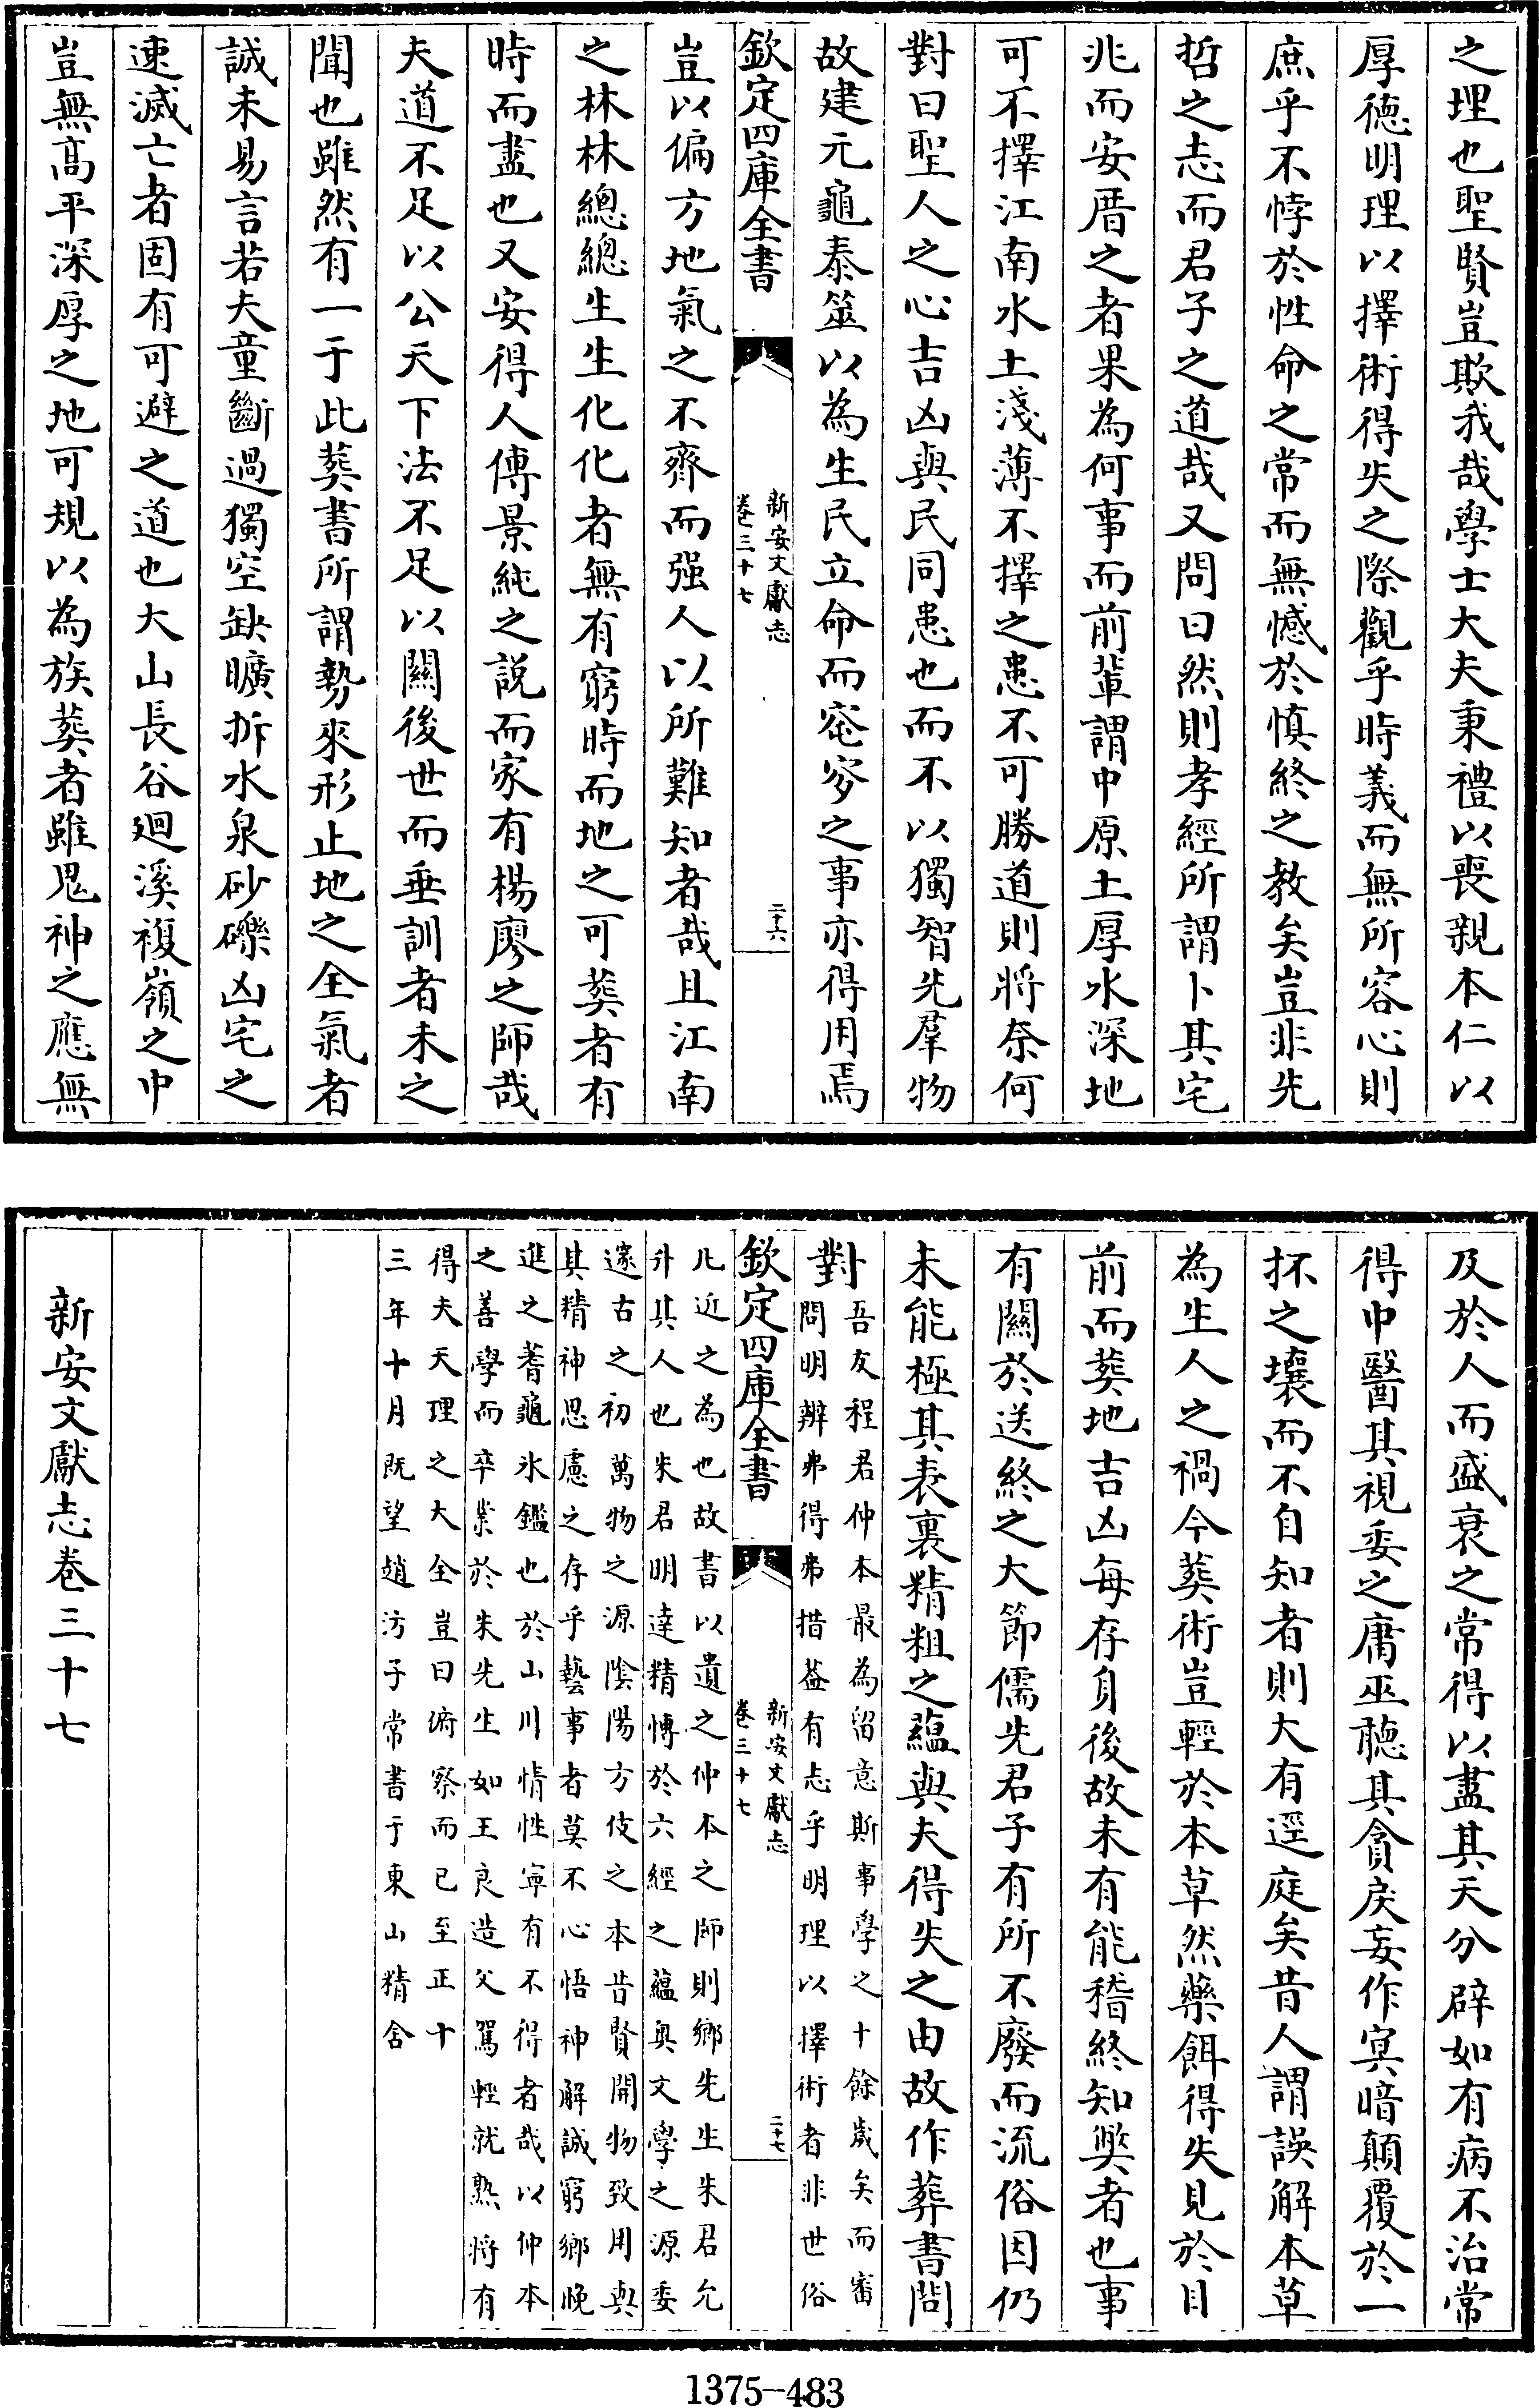 之理也聖賢豈欺我哉學士大夫秉禮以喪親本仁以
厚德明理以擇術得失之際觀乎時義而無所容心則
庶乎不悖於性命之常而無憾於慎終之教矣豈非先
哲之志而君子之道哉又問曰然則孝經所謂卜其宅
兆而安厝之者果為何事而前輩謂中原土厚水深地
可不擇江南水土淺薄不擇之患不可勝道則將奈何
對曰聖人之心吉凶與民同患也而不以獨智先羣物
故建元龜泰筮以為生民立命而窀穸之事亦得用焉
欽定四庫全書
新安文獻志
卷三十七
二十六
豈以偏方地氣之不齊而强人以所難知者哉且江南
之林林總總生生化化者無有窮時而地之可葬者有
時而盡也又安得人傳景純之說而家有楊廖之師哉
夫道不足以公天下法不足以關後世而垂訓者未之
聞也雖然有一于此葬書所謂勢來形止地之全氣者
誠未易言若夫童斷過獨空缺曠拆水泉砂礫凶宅之
速滅亡者固有可避之道也大山長谷廻溪複嶺之中
豈無髙平深厚之地可規以為族葬者雖鬼神之應無
及於人而盛衰之常得以盡其天分辟如有病不治常
得中醫其視委之庸巫聽其貪戾妄作㝠暗顛覆於一
抔之壤而不自知者則大有逕庭矣昔人謂誤解本草
為生人之禍今葬術豈輕於本草然藥餌得失見於目
前而葬地吉凶每存身後故未有能稽終知弊者也事
有關於送終之大節儒先君子有所不廢而流俗因仍
未能極其表裏精粗之蘊與夫得失之由故作葬書問
對
吾友程君仲本最為留意斯事學之十餘歲矣而審
問明辨弗得弗措葢有志乎明理以擇術者非世俗
欽定四庫全書
新安文獻志
卷三十七
二十七
凡近之為也故書以遺之仲本之師則鄉先生朱君允
升其人也朱君明達精愽於六經之蘊奥文學之源委
邃古之初萬物之源隂陽方伎之本昔賢開物致用與
其精神思慮之存乎藝事者莫不心悟神解誠窮鄉晚
進之蓍龜氷鑑也於山川情性寜有不得者哉以仲本
之善學而卒業於朱先生如王良造父駕輕就熟將有
得夫天理之大全豈曰俯察而已至正十
三年十月既望趙汸子常書于東山精舍
新安文獻志卷三十七
1375-483